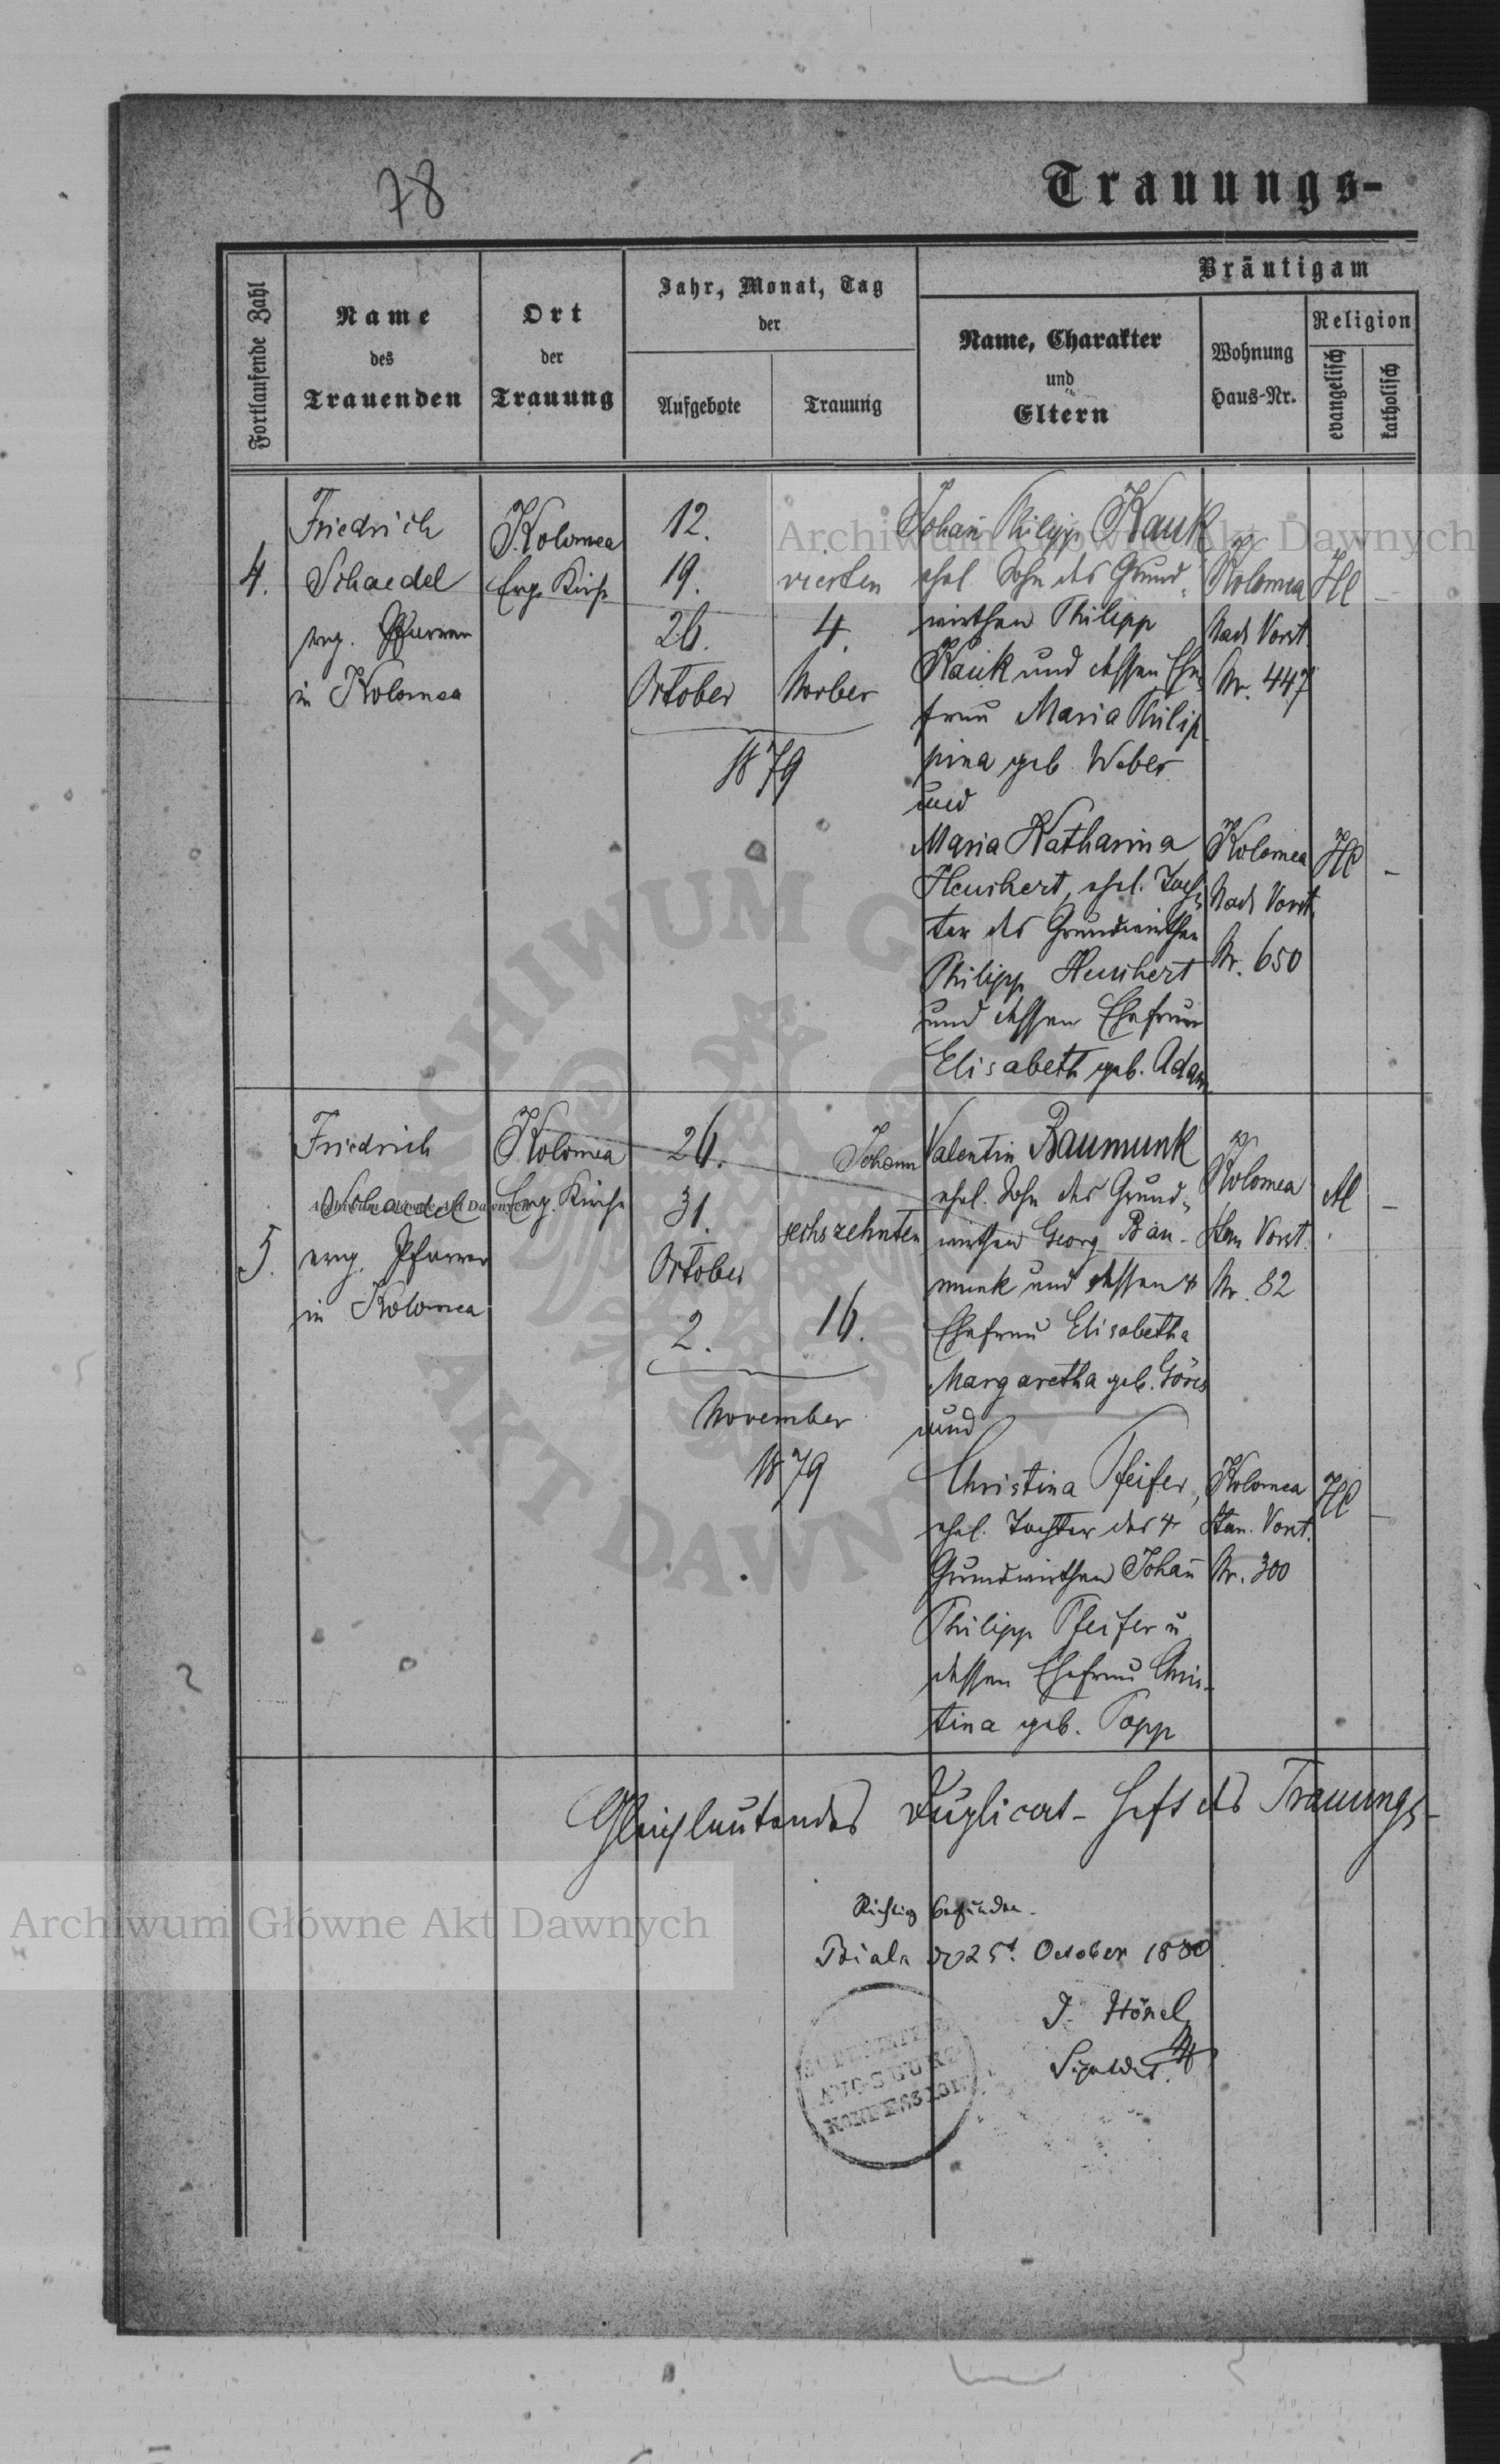 78
Trauungs-
Fortlaufende Zahl
Name
des
Trauenden
Ort
der
Trauung
Jahr, Monat, Tag
der
Aufgebote
Trauung
Bräutigam
Name, Charakter
und
Eltern
Wohnung
Haus-Nr.
Religion
evangelisch
katholisch
4.
Friedrich
Schaedel
evg. Pfarrer
in Kolomea
Kolomea
Evg. Kirche
12.
19.
26.
October
vierten
4.
Novber
1879
Johañ Philipp Kauk
ehel. Sohn des Grund-
wirthen Philipp
Kauk und dessen Ehe-
frau Maria Philip-
pina geb. Weber
und
Maria Katharina
Heuchert, ehel. Toch-
ter des Grundwirthen
Philipp Heuchert
und dessen Ehefrau
Elisabeth geb. Adam
Kolomea
Nad. Vorst.
Nr. 447
HC
–
Kolomea
Nad. Vorst.
Nr. 650
HC
–
5.
Friedrich
Schaedel
evng. Pfarrer
in Kolomea
Kolomea
Evg. Kirche
26.
31.
October
2.
sechszehnten
16.
November
1879
Johann Valentin Baumunk
ehel. Sohn des Grund-
wirthen Georg Bau-
munk und dessen
Ehefrau Elisabetha
Margaretha geb. Göres
und
Christina Pfeifer,
ehel. Tochter des
Grundwirthen Johañ
Philipp Pfeifer u
dessen Ehefrau Chris-
tina geb. Popp
Kolomea
Stan. Vorst.
Nr. 82
–
Kolomea
Stan. Vorst.
Nr. 300
HC
–
Gleichlautendes Duplicat-Heft des Trauungs-
Richtig befunden.
Biala 25t. October 1880
J. Hönel
AUGSBURG
KONFESSION
Archiwum Główne Akt Dawnych
Archiwum Główne Akt Dawnych
Archiwum Główne Akt Dawnych